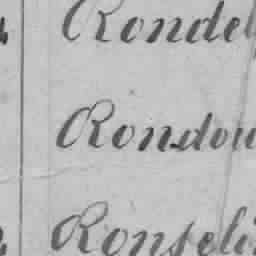 Rondel
Rondou
Ronseli